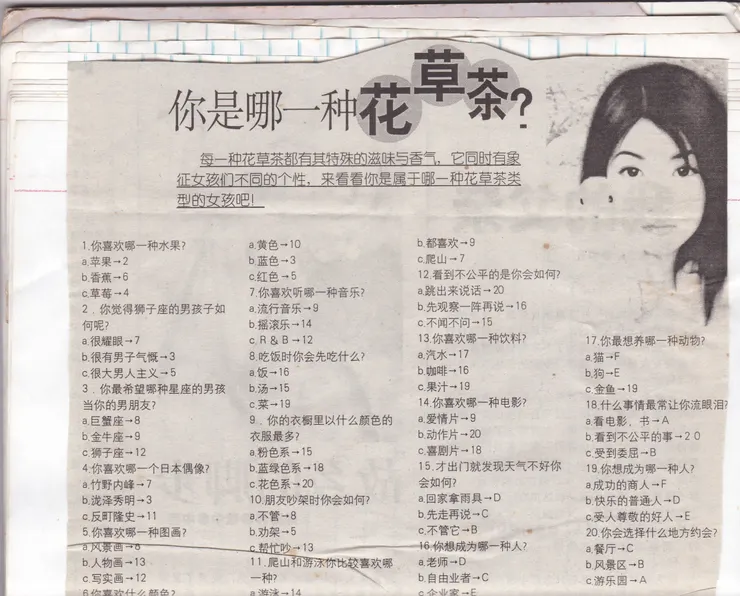 你是哪一种花草茶?
每一种花草茶都有其特殊的滋味与香气，它同时有象
征女孩们不同的个性，来看看你是属于哪一种花草茶类
型的女孩吧!
1.你喜欢哪一种水果?
a.苹果→2
b.香蕉→6
c.草莓→4
2．你觉得狮子座的男孩子如
何呢?
a.很耀眼→7
b.很有男子气慨→3
c.很大男人主义→5
3．你最希望哪种星座的男孩
当你的男朋友?
a.巨蟹座→8
b.金牛座→9
c.狮子座→12
4.你喜欢哪一个日本偶像?
a.竹野内峰→7
b.泷泽秀明→3
c.反町隆史→11
5.你喜欢哪一种图画?
a.风景画→8
b.人物画→13
c.写实画→12
6.你喜欢什么颜色?
a.黄色→10
b.蓝色→3
c.红色→5
7.你喜欢听哪一种音乐?
a.流行音乐→9
b.摇滚乐→14
c.R＆B→12
8.吃饭时你会先吃什么?
a.饭→16
b.汤→15
c.菜→19
9．你的衣橱里以什么颜色的
衣服最多?
a.粉色系→15
b.蓝绿色系→18
c.花色系→20
10.朋友吵架时你会如何?
a.不管→8
b.劝架→5
c.帮忙吵→13
11.爬山和游泳你比较喜欢哪
一种?
a.游泳→14
b.都喜欢→9
c.爬山→7
12.看到不公平的是你会如何?
a.跳出来说话→20
b.先观察一阵再说→16
c.不闻不问→15
13.你喜欢哪一种饮料?
a.汽水→17
b.咖啡→16
c.果汁→19
14.你喜欢哪一种电影?
a.爱情片→9
b.动作片→20
c.喜剧片→18
15.才出门就发现天气不好你
会如何?
a.回家拿雨具→D
b.先走再说→C
c.不管它→B
16.你想成为哪一种人?
a.老师→D
b.自由业者→C
c.企业家→E
17.你最想养哪一种动物?
a.猫→F
b.狗→E
c.金鱼→19
18.什么事情最常让你流眼泪?
a.看电影、书→A
b.看到不公平的事→20
c.受到委屈→B
19.你想成为哪一种人?
a.成功的商人→F
b.快乐的普通人→D
c.受人尊敬的好人→E
20.你会选择什么地方约会?
a.餐厅→C
b.风景区→B
c.游乐园→A